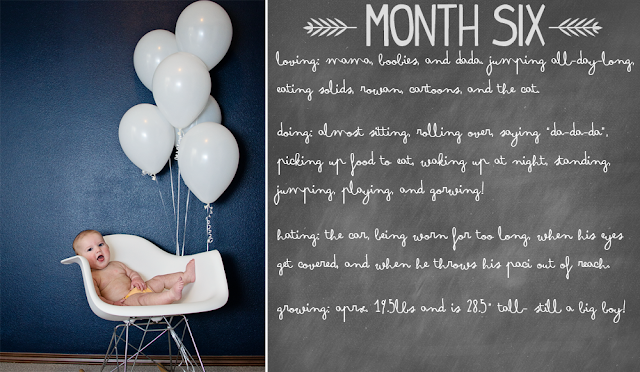 MONTH SIX
loving: mama, boobies, and dada, jumping all-day-long,
eating solids, rowan, cartoons, and the cat.
doing: almost sitting, rolling over, saying "da-da-da",
picking up food to eat, waking up at night, standing,
jumping, playing, and gorwing!
hating: the car, being worn for too long, when his eyes
get covered, and when he throws his paci out of reach.
growing: aprx. 19.5lbs and is 28.5" tall- still a big boy!